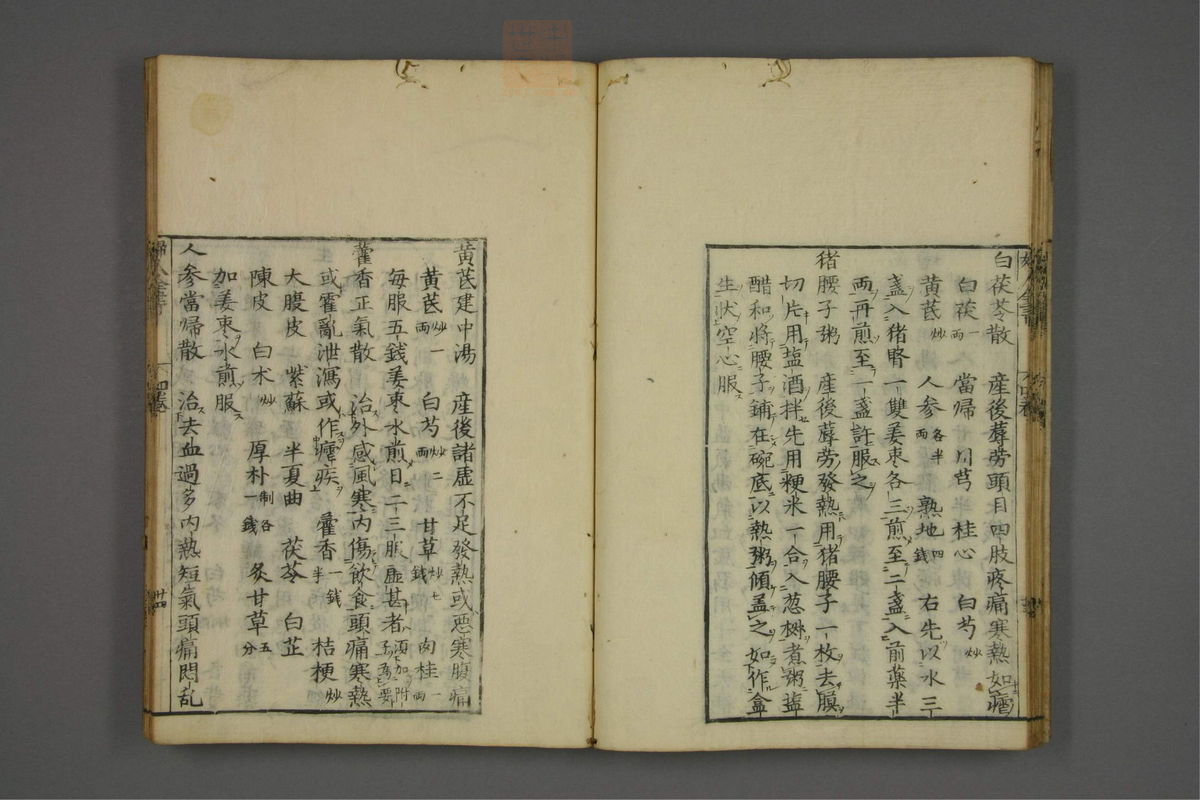 白茯苓散 産後蓐劳頭目四肢疼痛寒熱如瘧
白茯一兩 當帰 川芎 桂心 白芍炒
黄芪炒 人参各半兩 熟地四錢 右先以水三
盞入猪腎一雙姜枣各三煎至二盞入前薬半
兩再煎至一盞許服之
猪腰子粥 産後蓐劳發熱用猪腰子一枚去膜
切片用塩酒拌先用粳米一合入葱椒煮粥塩
醋和将腰子鋪在碗底以熱粥傾盖之如作盒
生状空心服
黄芪建中湯 産後諸虚不足發熱或悪寒腹痛
黄芪炒一兩 白芍炒二兩 甘草炒七錢 肉桂一兩
毎服五錢姜枣水煎日二三服虚甚者須加附子為要
藿香正氣散 治外感風寒内傷飲食頭痛寒熱
或霍亂泄瀉或作瘧疾 藿香一錢半 桔梗炒
大腹皮 紫蘇 半夏曲 茯苓 白芷
陳皮 白术炒 厚朴制各一錢 炙甘草五分
加姜枣水煎服
人参當帰散 治去血過多内熱短氣頭痛悶乱